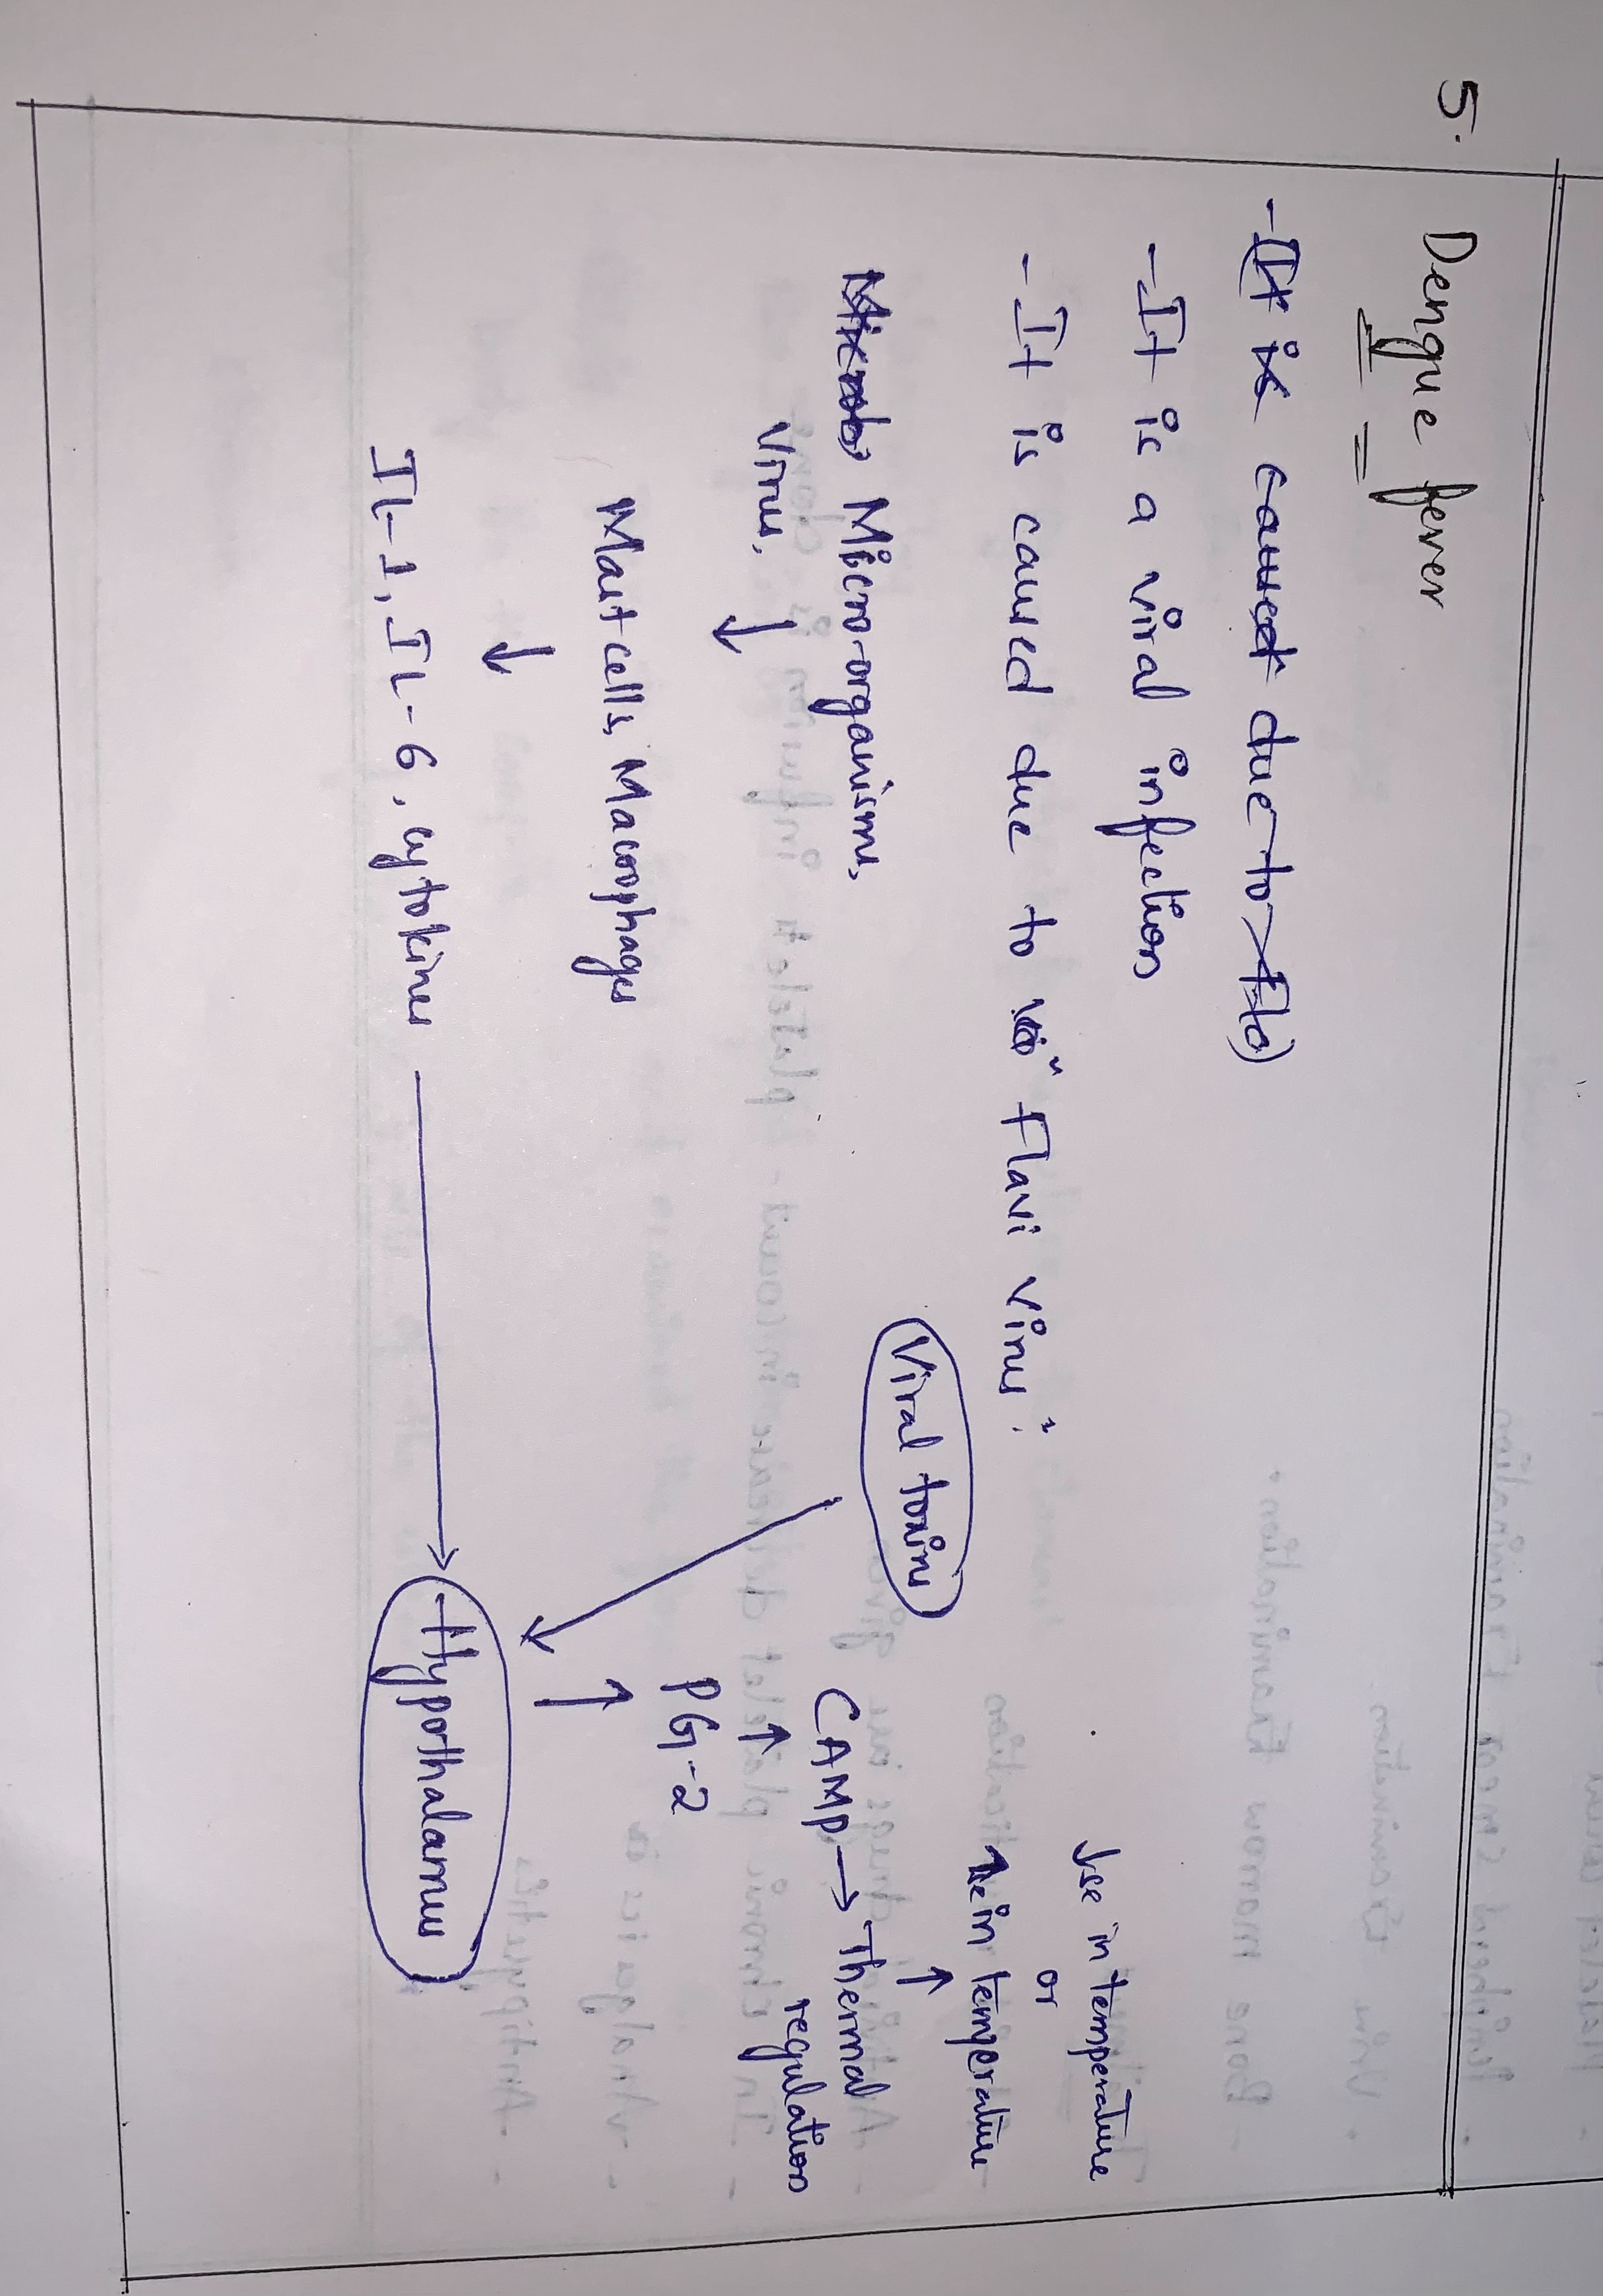 5. Dengue fever
- It is caused due to Fla
- It is a viral infection
- It is caused due to Flavi virus:
Microb Micro-organisms,
virus,
↓
Mast cells, Macrophages
↓
IL-1, IL-6, cytokines → Hypothalamus
Viral toxins
↑
PG-2
↑
CAMP → Thermal
regulation
↑
↑se in temperature
or
↓se in temperature